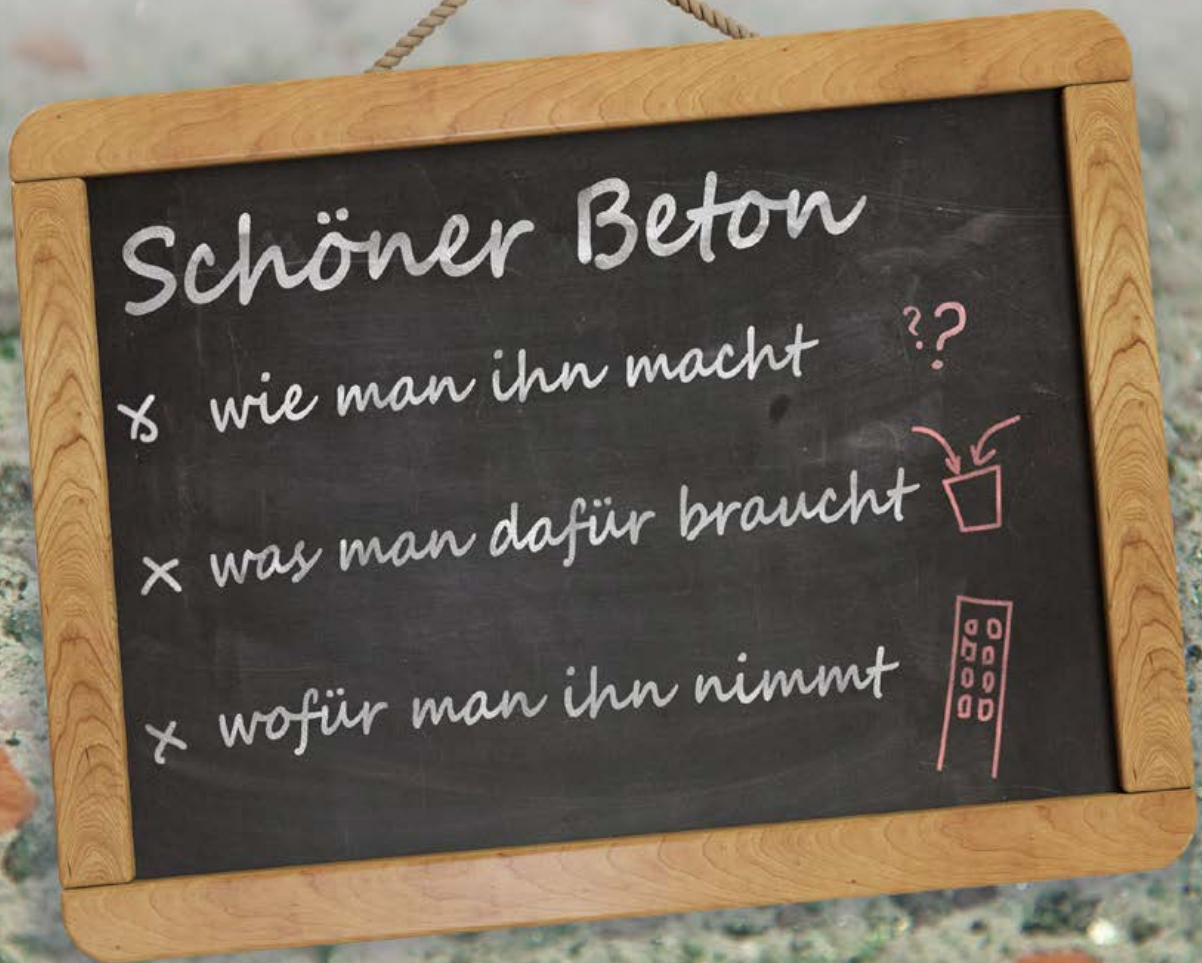 Schöner Beton
x wie man ihn macht ??
x was man dafür braucht
x wofür man ihn nimmt